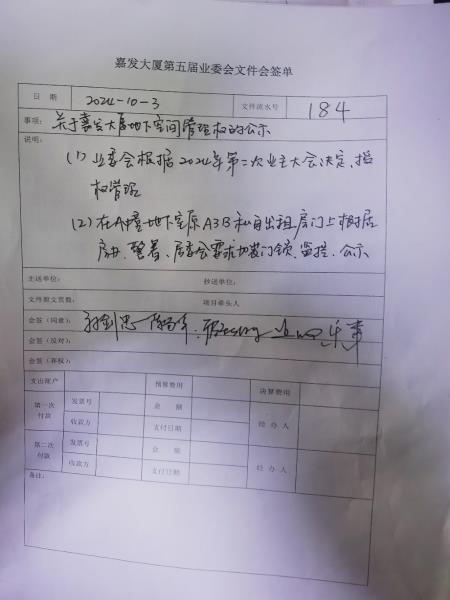 嘉发大厦第五届业委会文件会签单
日 期 2024-10-3 文件流水号 184
事项： 关于嘉发大厦地下空间管理权的公示
说明：
(1) 业委会根据2024年第二次业主大会决定,指
权管理
(2) 在A幢地下室原A3B私自出租房门上根据
房办、警署、居委会要求加装门锁、监控、公示
主送单位： 抄送单位：
文件报文页数： 项目牵头人
会签（同意）：
会签（反对）：
会签（弃权）：
支出账户 预算费用 决算费用
第一次付款 发票号 金 额 经 办 人
收款方 支付日期
第二次付款 发票号 金 额 经 办 人
收款方 支付日期
备注：